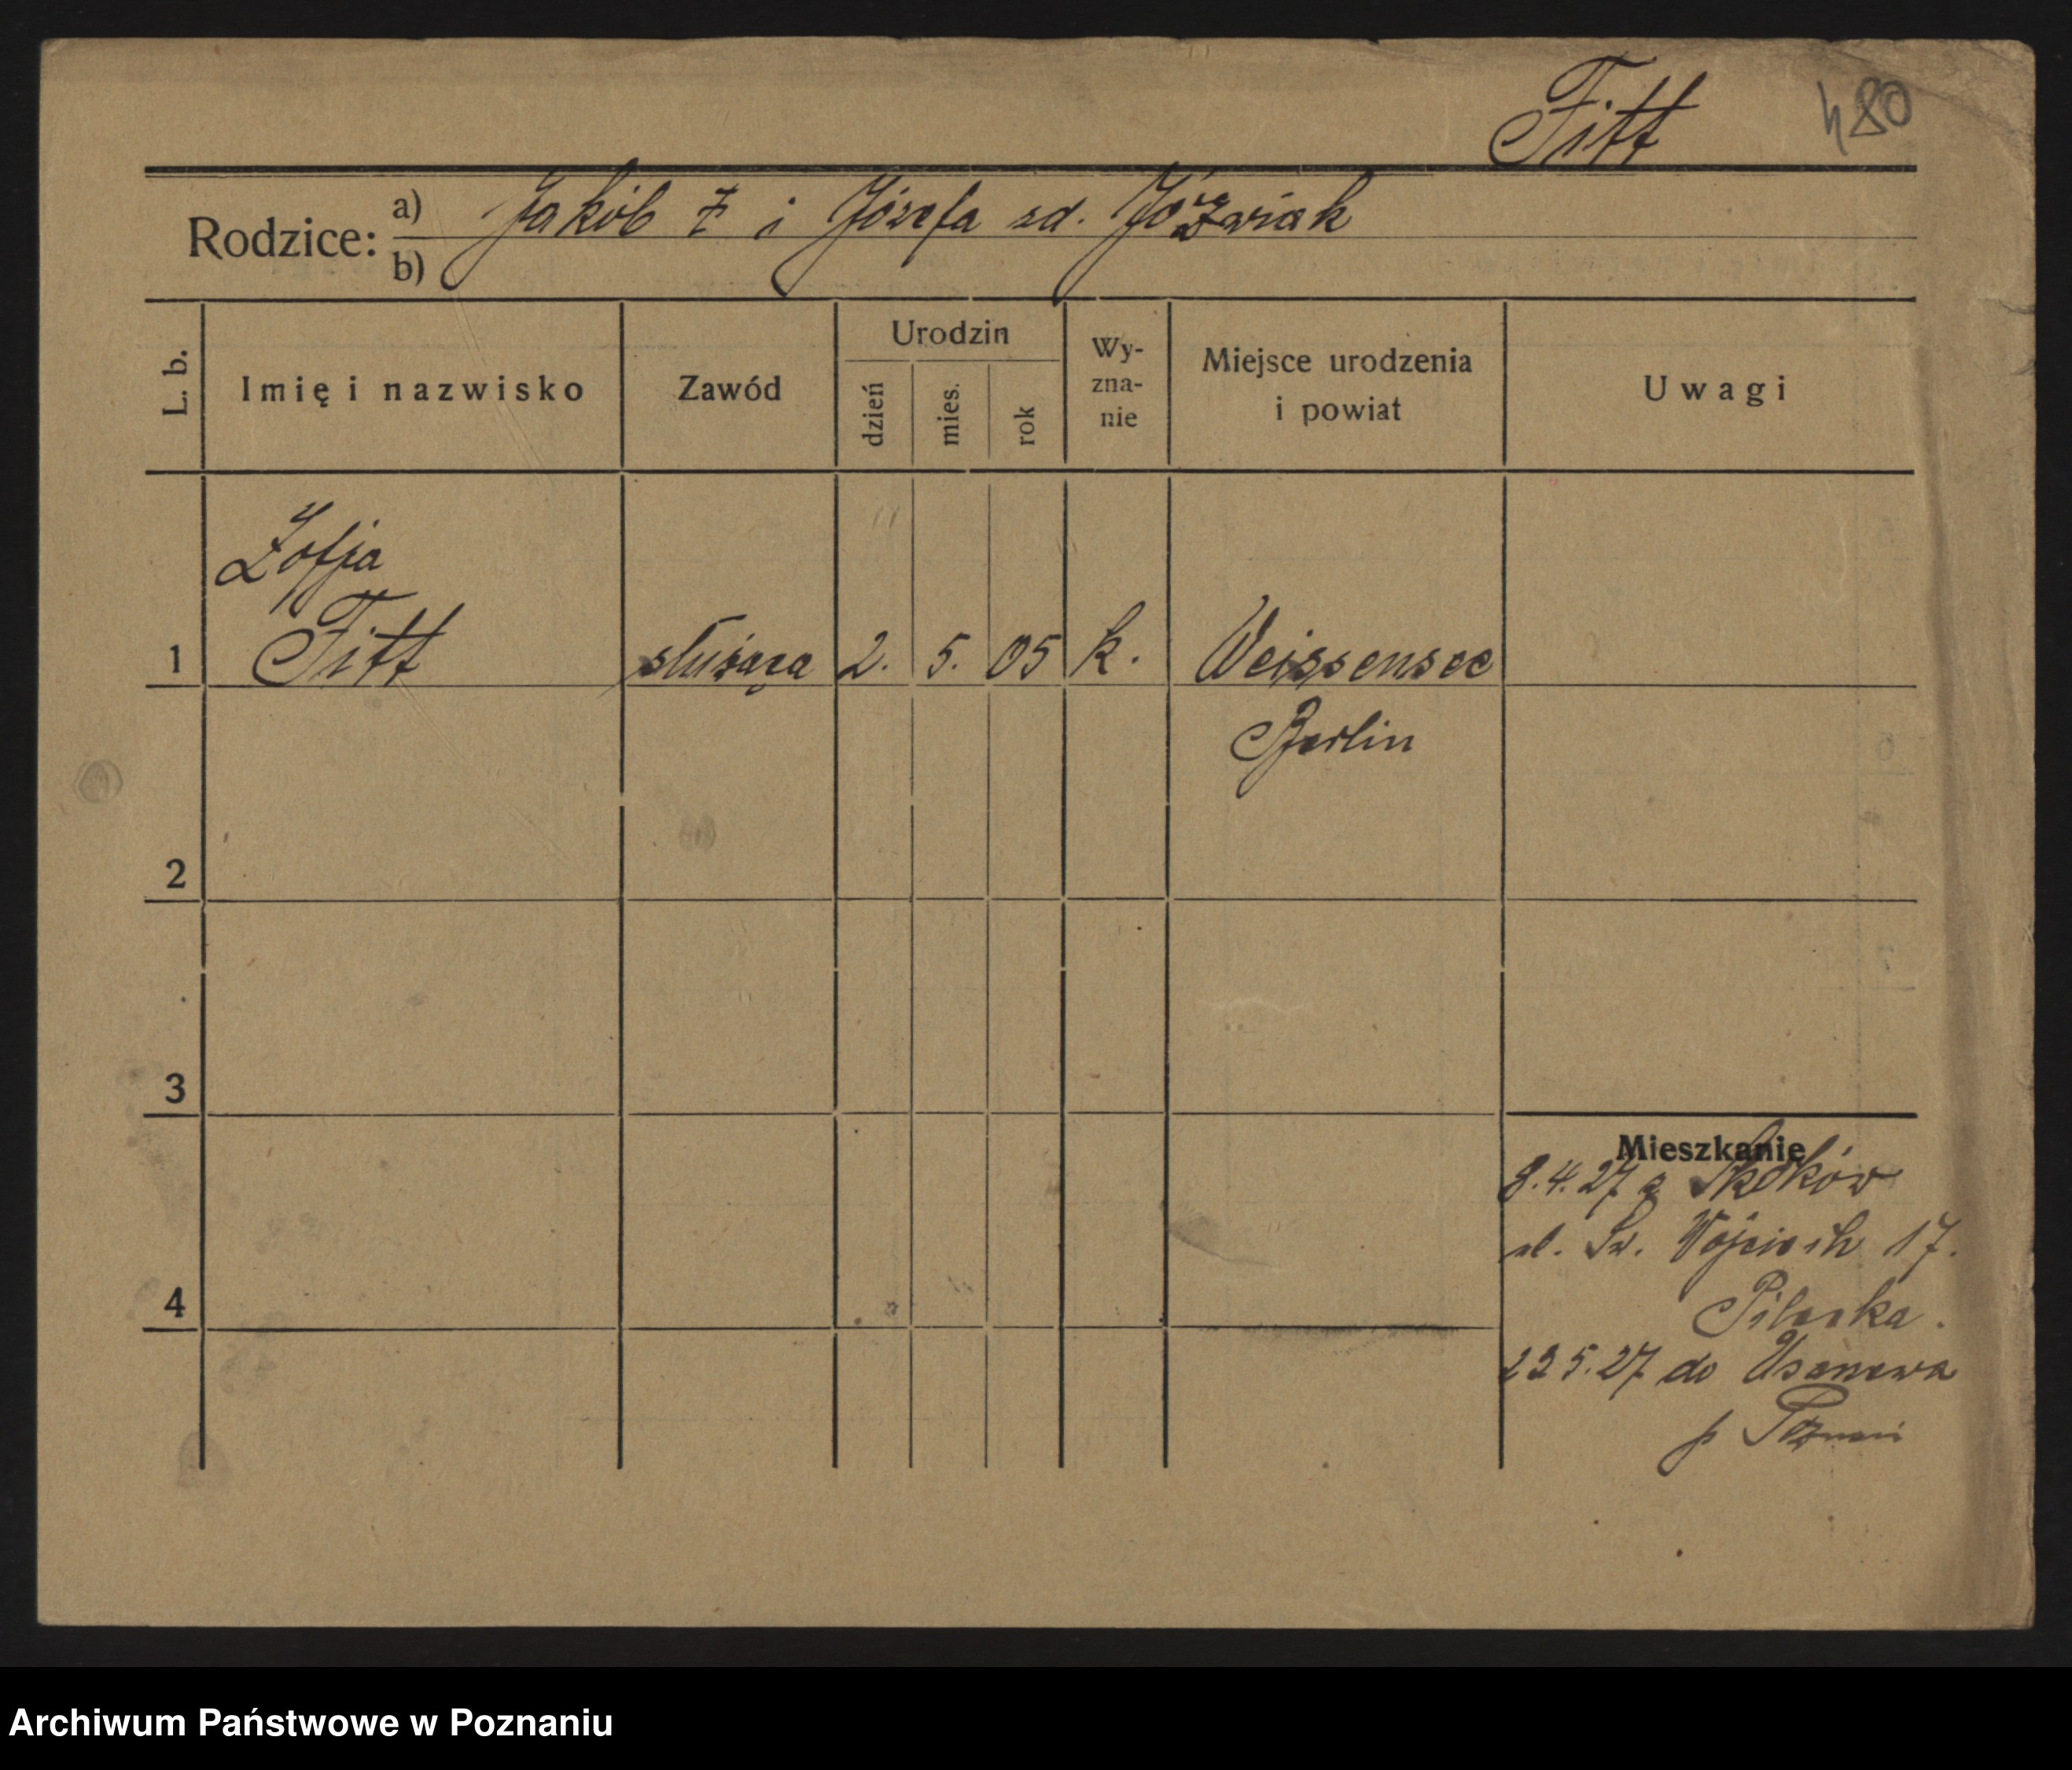 Fitt 480
Rodzice: a) Jakób F i Józefa zd. Józwiak
b)
L. b. Imię i nazwisko Zawód Urodzin dzień mies. rok Wy-zna-nie Miejsce urodzenia i powiat Uwagi
Zofja
1 Fitt służąca 2. 5. 05 k. Weissensee
Berlin
2
3
Mieszkanie
8.4.27 z Skoków
ul. Św. Wojciech 17.
4
22 5.27 do
p Poznań
Archiwum Państwowe w Poznaniu